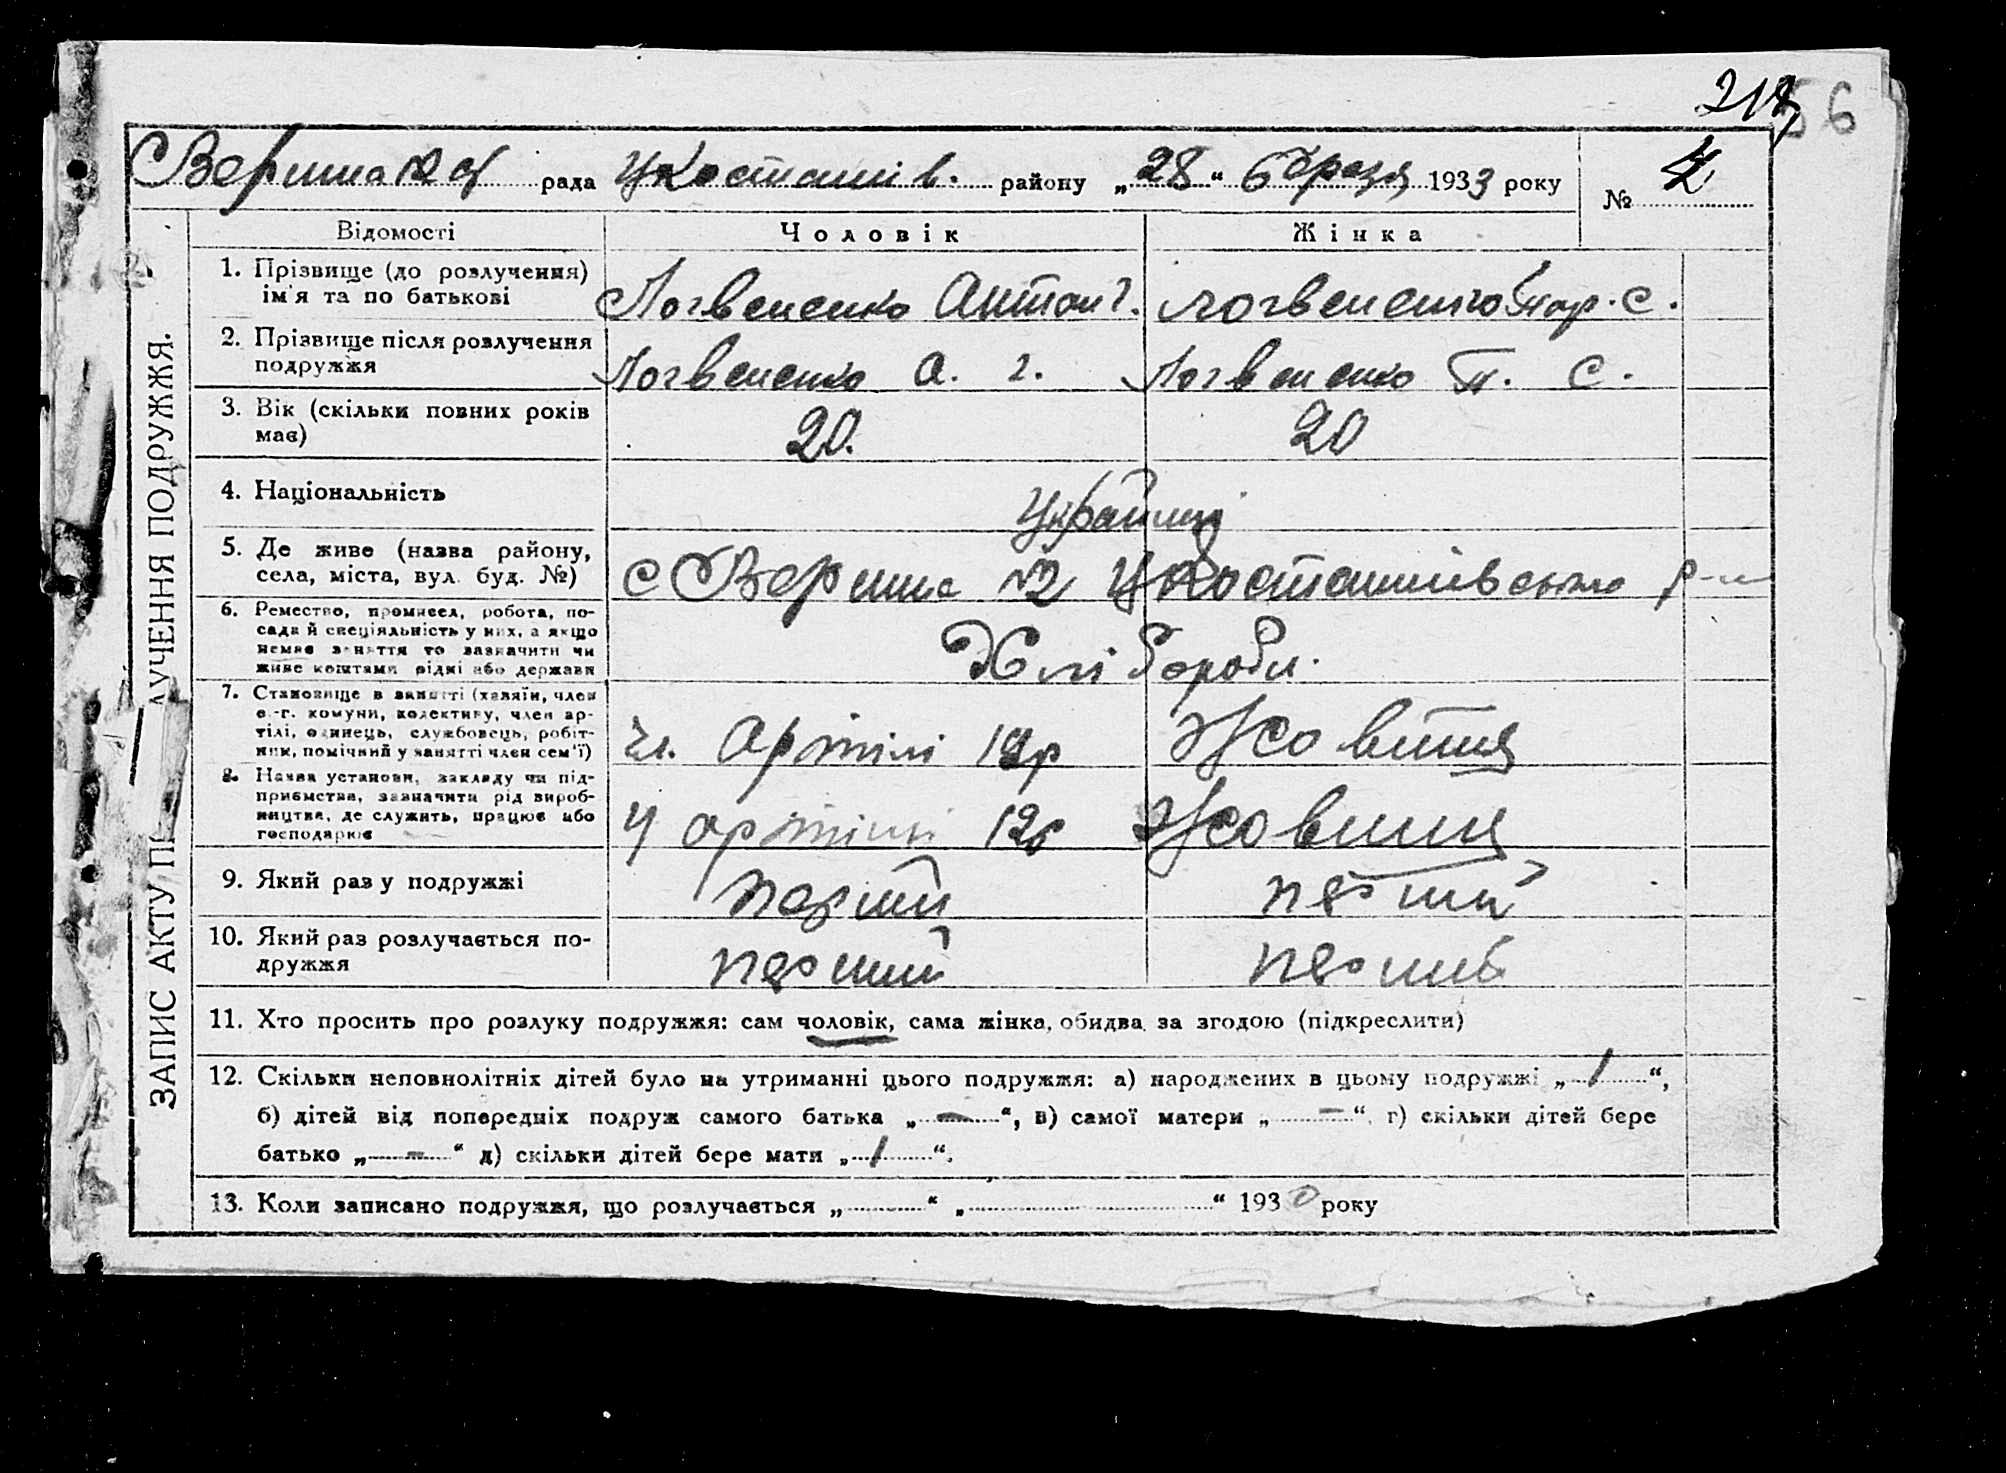 56
Вершина №2 рада Цкосташів. району „28“ березня 1933 року № 4
ЗАПИС АКТУ ПР ЛУЧЕННЯ ПОДРУЖЖЯ.
Відомості Чоловік Жінка
1. Прізвище (до розлучення) ім'я та по батькові Логвененко Антон Г. Логвененко Пар. С.
2. Прізвище після розлучення подружжя Логвененко А. Г. Логвененко П. С.
3. Вік (скільки повних років має) 20. 20
4. Національність Українці
5. Де живе (назва району, села, міста, вул. буд. №) с Вершина №2 р-н
6. Ремество, промисел, робота, посада й спеціяльність у них, а якщо немає заняття то зазначити чи живе коштами рідні або держави Хлібороби.
7. Становище в занятті (хазяїн, член с.-г. комуни, колективу, член артілі, одинець, службовець, робітник, помічний у занятті член сем'ї) Чл. Артілі Жовтня
8. Назва установи, закладу чи підприємства, зазначити рід виробництва, де служить, працює або господарює У артілі Жовтня
9. Який раз у подружжі перший перший
10. Який раз розлучається подружжя перший перший
11. Хто просить про розлуку подружжя: сам чоловік, сама жінка, обидва за згодою (підкреслити)
12. Скільки неповнолітніх дітей було на утриманні цього подружжя: а) народжених в цьому подружжі „1“,
б) дітей від попередніх подруж самого батька „—“, в) самої матери „—“, г) скільки дітей бере
батько „—“ д) скільки дітей бере мати „1“.
13. Коли записано подружжя, що розлучається „ “ „ “ 1930 року